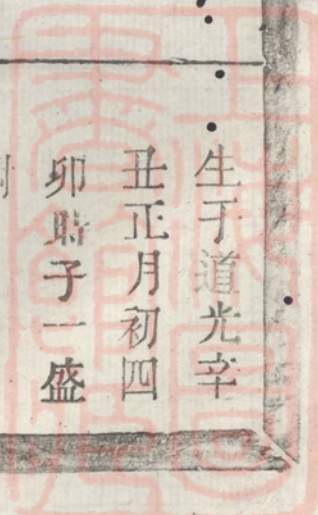 生于道光辛
丑正月初四
卯時子一盛